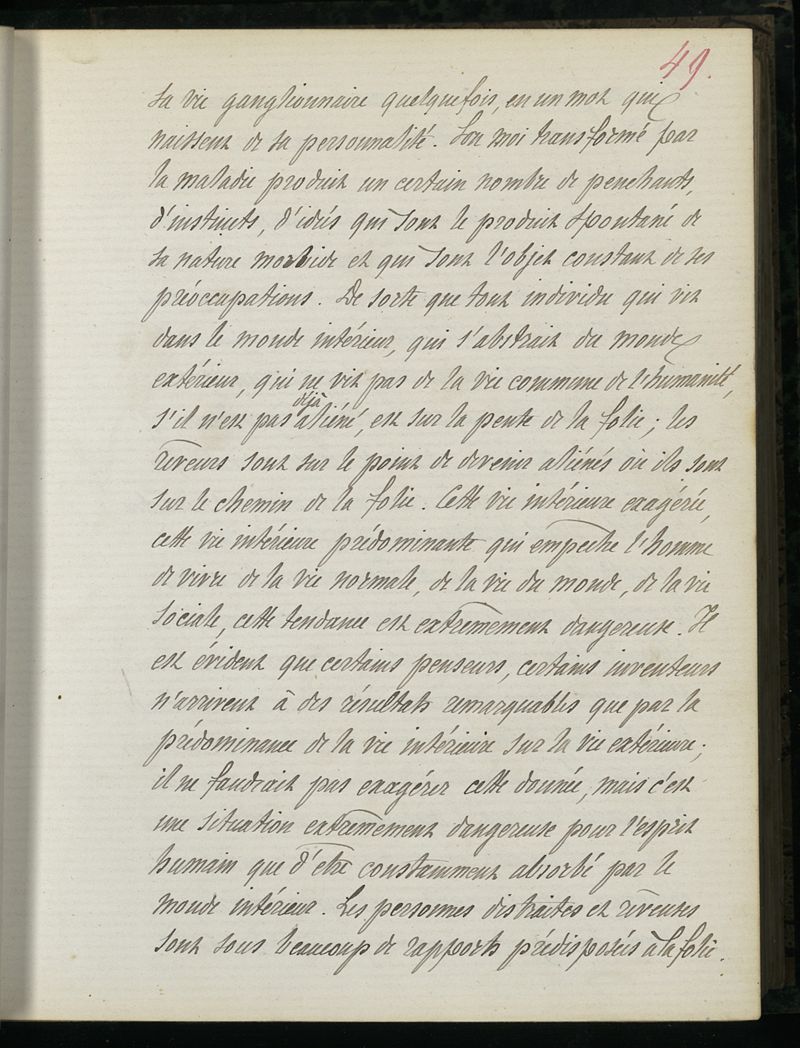 49.
sa vie ganglionnaire quelquefois, en un mot qui
naissent de sa personnalité. Son moi transformé par
la maladie produit un certain nombre de penchants,
d'instincts, d'idées qui sont le produit spontané de
sa nature morbide et qui sont l'objet constant de ses
préoccupations. De sorte que tout individu qui vit
dans le monde intérieur, qui s'abstrait du monde
extérieur, qui ne vit pas de la vie commune de l'humanité,
s'il n'est pas déjà aliéné, est sur la pente de la folie ; les
rêveurs sont sur le point de devenir aliénés où ils sont
sur le chemin de la folie. Cette vie intérieure exagérée,
cette vie intérieure prédominante qui empêche l'homme
de vivre de la vie normale, de la vie du monde, de la vie
sociale, cette tendance est extrêmement dangereuse. Il
est évident que certains penseurs, certains inventeurs
n'arrivent à des résultats remarquables que par la
prédominance de la vie intérieure sur la vie extérieure ;
il ne faudrait pas exagérer cette donnée, mais c'est
une situation extrêmement dangereuse pour l'esprit
humain que d'être constamment absorbé par le
monde intérieur. Les personnes distraites et rêveuses
sont sous beaucoup de rapports prédisposées à la folie.